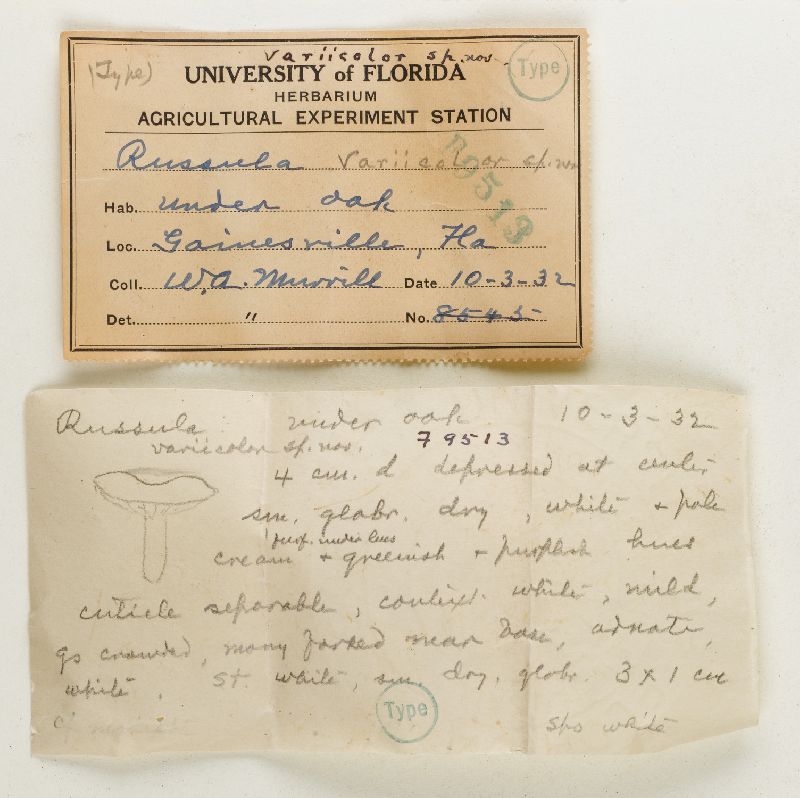 variicolor sp. nov.
(Type)
Type
UNIVERSITY of FLORIDA
HERBARIUM
AGRICULTURAL EXPERIMENT STATION
Russula variicolor sp. nov
79513
Hab. under oak
Loc. Gainesville, Fla
Coll. W.A. Murrill Date 10-3-32
Det. " No. 8545
Russula under oak 10-3-32
variicolor sp. nov. 79513
4 cm. d depressed at center
sm. glabr. dry, white + pale
purp. under lens
cream + greenish + purplish hues
cuticle separable, context white, mild,
gs crowded, many forked near base, adnate,
white, St. white, sm. dry. glabr. 3 x 1 cm
Type
cf spo white